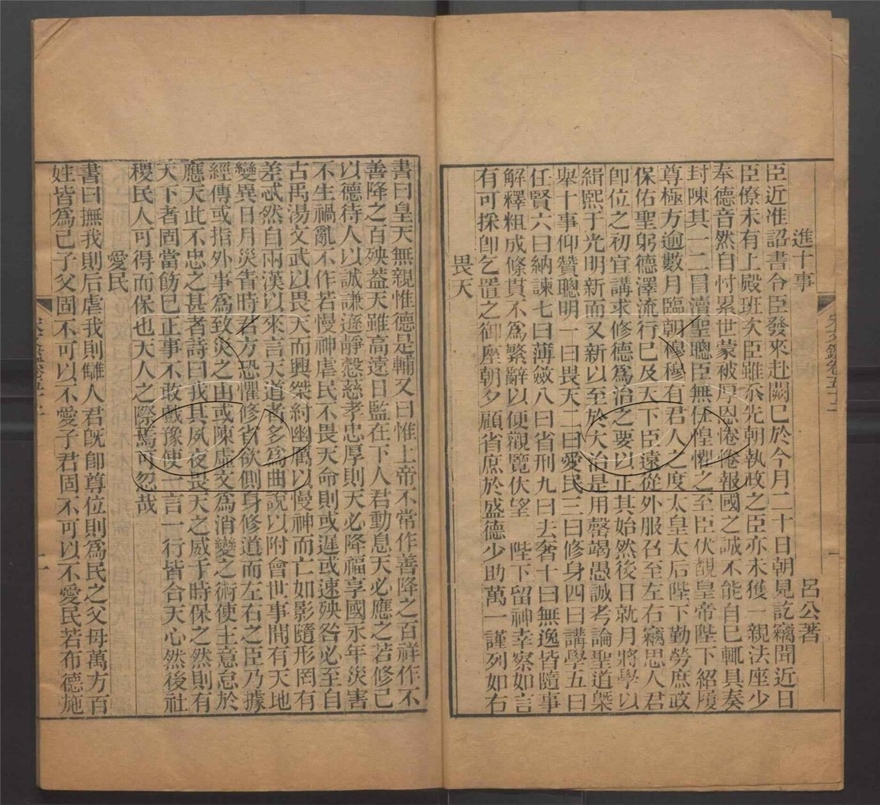 進十事
呂公著
臣近准詔書令臣發來赴闕已於今月二十日朝見訖竊聞近日
臣僚未有上殿班次臣雖忝先朝執政之臣亦未獲一親法座少
奉德音然自忖累世蒙被厚恩惓惓報國之誠不能自已輒具奏
封陳其一二冒瀆聖聰臣無任惶懼之至臣伏覩皇帝陛下紹履
尊極方逾數月臨朝穆穆有君人之度太皇太后陛下勤勞庶政
保佑聖躬德澤流行已及天下臣遠從外服召至左右竊思人君
卽位之初宜講求修德為治之要以正其始然後日就月將學以
緝熙于光明新而又新以至於大治是用罄竭愚誠考論聖道槩
舉十事仰贊聰明一曰畏天二曰愛民三曰修身四曰講學五曰
任賢六曰納諫七曰薄斂八曰省刑九曰去奢十曰無逸皆隨事
解釋粗成條貫不為繁辭以便觀覽伏望 陛下留神幸察如言
有可採卽乞置之御座朝夕顧省庶於盛德少助萬一謹列如右
畏天
書曰皇天無親惟德是輔又曰惟上帝不常作善降之百祥作不
善降之百殃葢天雖高遠日監在下人君動息天必應之若修己
以德待人以誠謙遜靜慤慈孝忠厚則天必降福享國永年災害
不生禍亂不作若慢神虐民不畏天命則或遲或速殃咎必至自
古禹湯文武以畏天而興桀紂幽厲以慢神而亡如影隨形罔有
差忒然自兩漢以來言天道者多為曲說以附會世事間有天地
變異日月災眚時君方恐懼修省欲側身修道而左右之臣乃據
經傳或指外事為致災之由或陳虛文為消變之術使主意怠於
應天此不忠之甚者詩曰我其夙夜畏天之威于時保之然則有
天下者固當飭己正事不敢戲豫使一言一行皆合天心然後社
稷民人可得而保也天人之際焉可忽哉
愛民
書曰撫我則后虐我則讎人君旣卽尊位則為民之父母萬方百
姓皆為己子父固不可以不愛子君固不可以不愛民若布德施